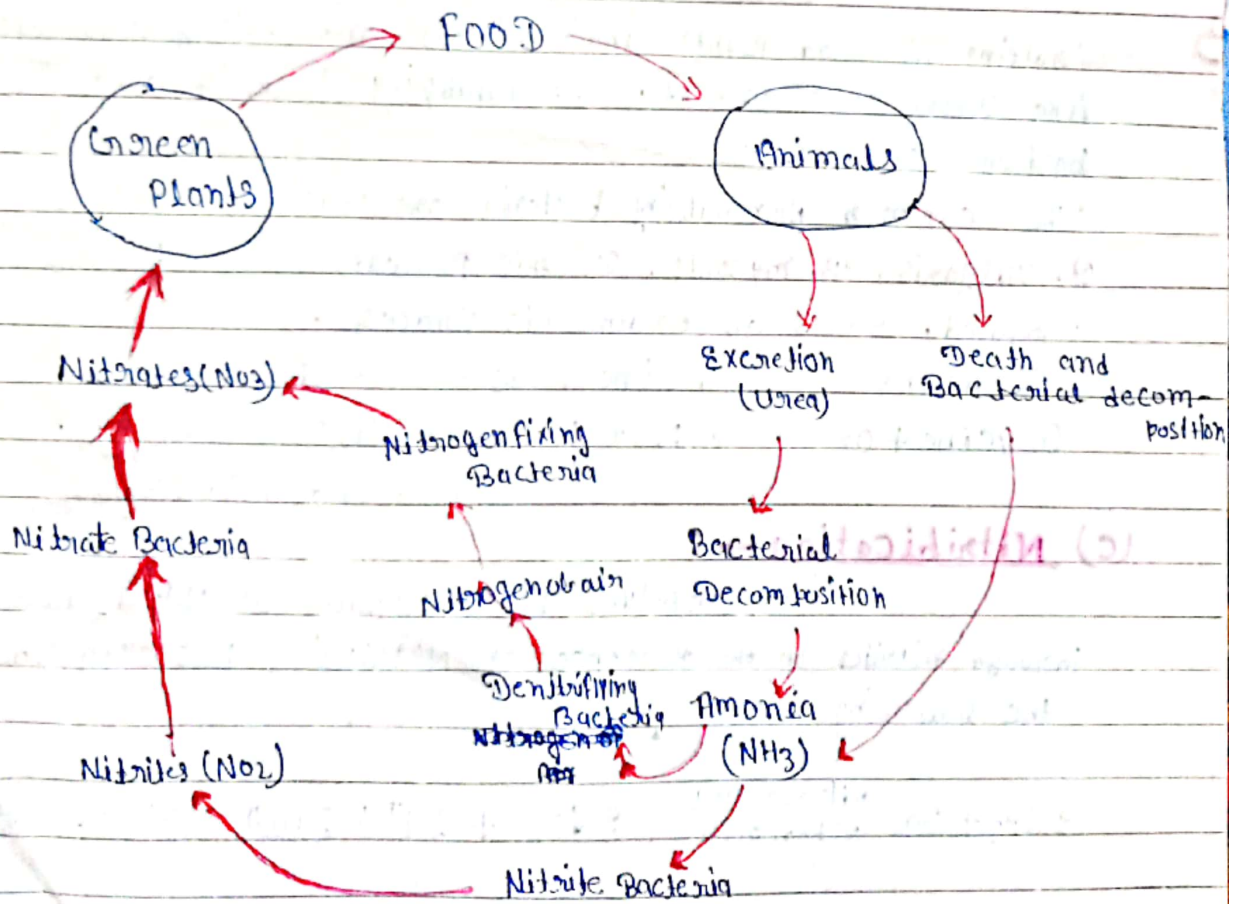 FOOD
Green
Plants
Animals
Nitrates(No3)
Excretion
(Urea)
Death and
Bacterial decom-
position
Nitrogen fixing
Bacteria
Nitrate Bacteria
Bacterial
Decomposition
Nitrogen of air
Denitrifiying
Bacteria
Amonia
(NH3)
Nitrites (NO2)
Nitrite Bacteria